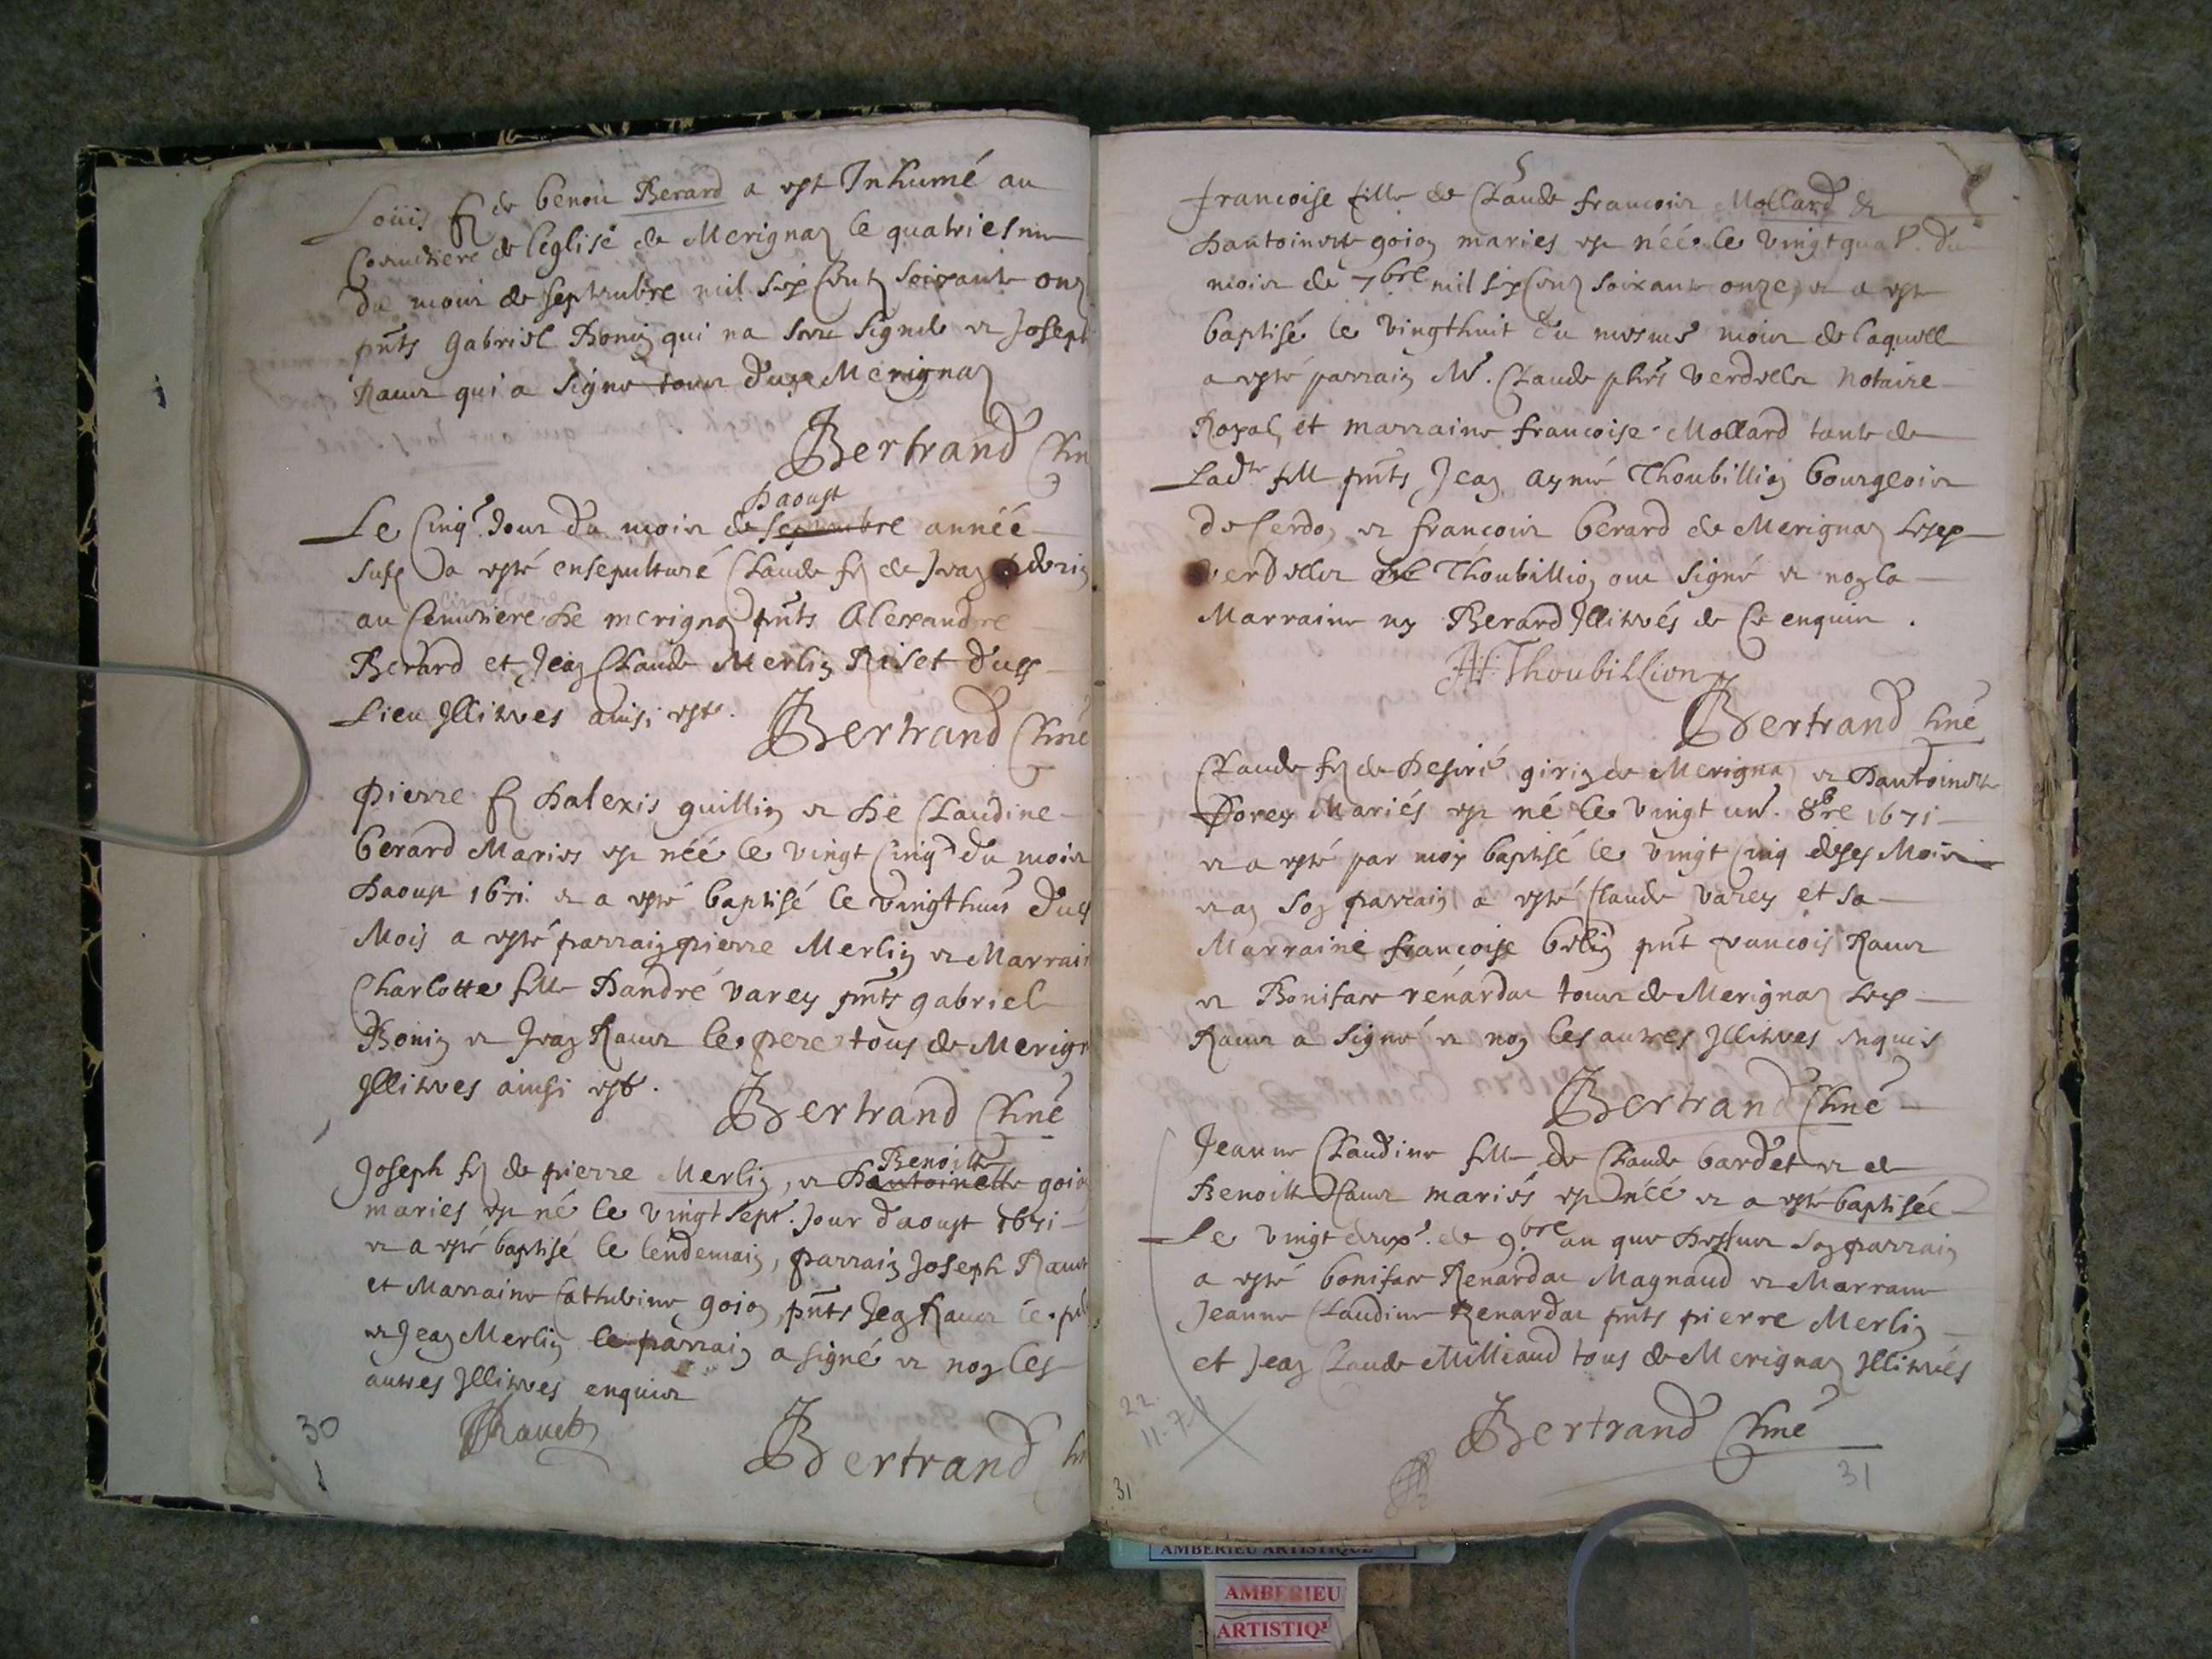 Loüis fz de benoit Berard a est Inhumé au
Cemetiere de leglise de Merignaz le quatriesme
du mois de septembre mil six centz soixante onz
pnts Gabriel Bonin qui na sceu signer et Joseph
Raur qui a signe tous dudt Merignaz
Bertrand
daoust
Le Cinqe Jour du mois de septembre année
susd a esté ensepulturé Claude fz de Jean
au Cemetiere de merigna pnts Alexandre
Berard et Jean Claude Merlin Riset dud
Lieu Illitres ainsi est. Bertrand Curé
Pierre fz dalexis guillin et de Claudine
berard Maries est née le vingt cinqe du mois
daoust 1671. et a esté baptisé le vingthuit dud
Mois a esté parrain pierre Merlin et Marrai
Charlotte fille dandré varey pnts gabriel
Bonin et Jean Raur le pere tous de Merign
Illitres ainsi est. Bertrand Curé
Benoitte
Joseph fz de pierre Merlin, et dantoinette goion
maries est né le vingt sept. Jour daoust 1671
et a esté baptisé le lendemain, parrain Joseph Raur
et Marraine Catheline goion, pnts Jean Raur le
et Jean Merlin le parrain a signé et non les
autres Illitres enquis
JRaucz
Bertrand
30
francoise fille de Claude francois Mollard et
dantoinette goion maries est née le vingtquat. du
mois de 7bre mil six cens soixante onze, et a este
baptisé le vingthuit du mesme mois de laquelle
a esté parrain Me. Claude verdellet Notaire
Royal, et marraine francoise Mollard tante de
Ladte fille pnts Jean aymé Thoubillion bourgeois
de Cerdon et francois berard de Merignaz
verdellet Thoubillion ont signé et non la
Marraine ny Berard Illitrés de ce enquis.
Thoubillion
Bertrand Curé
Claude fz de desiré girin de Merignaz et dantoinette
Dorey Mariés est né le vingt un. 8bre 1671
et a esté par moy baptisé le vingt cinq desd Mois
et an son parrain a esté Claude varey et sa
Marraine francoise belin pnt francois Raur
et Boniface rénardat tous de Merignaz Led
Raur a signé et non les autres Illitres enquis
Bertrand Curé
Jeanne Claudine fille de Claude bardet et de
Benoitte Raur mariés est née et a esté baptisée
Le vingt deuxe. de 9bre an que dessus son parrain
a esté boniface Renardat Magnaud et Marraine
Jeanne Claudine Renardat pnts pierre Merlin
et Jean Claude Milliaud tous de Merignaz Illitrés
22.
11-71
Bertrand Curé
31
31
AMBERIEU ARTISTIQUE
AMBERIEU
ARTISTIQ